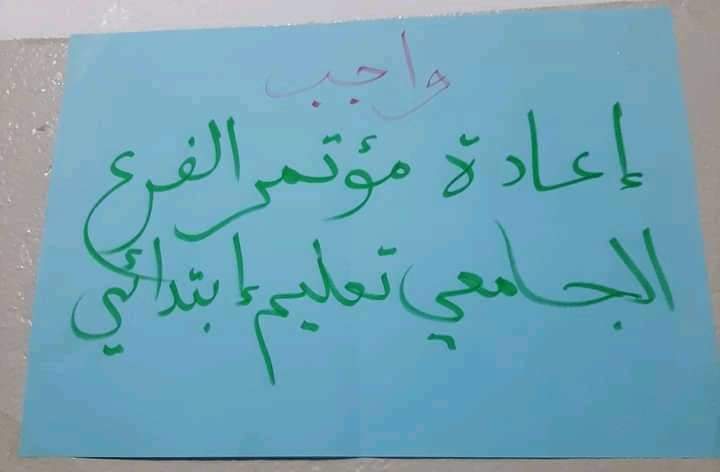 واجب
إعادة مؤتمر الفرع
الجامعي تعليم إبتدائي